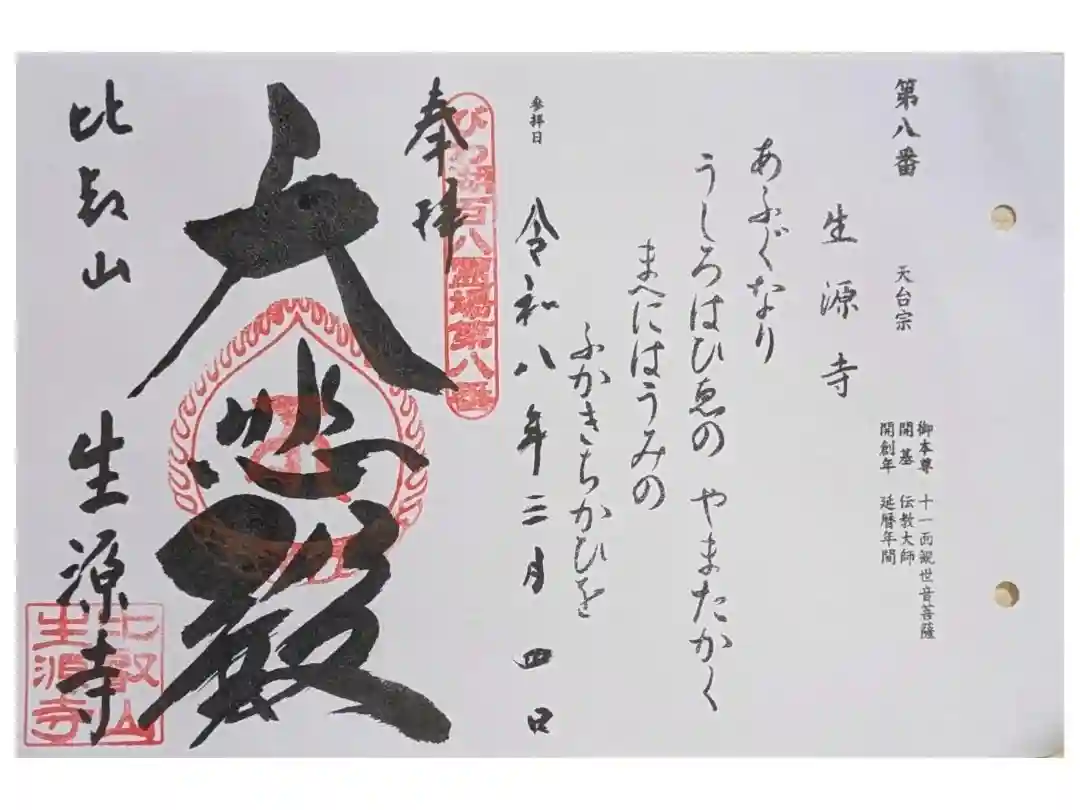 第八番 天台宗
御本尊 十一面観世音菩薩
開基 伝教大師
開創年 延暦年間
生源寺
あふぐなり
うしろはひゑの やまたかく
まへにはうみの
ふかきちかひを
参拝日 令和八年三月四日
奉拝
びわ湖百八霊場第八番
大悲殿
比叡山 生源寺
比叡山
生源寺